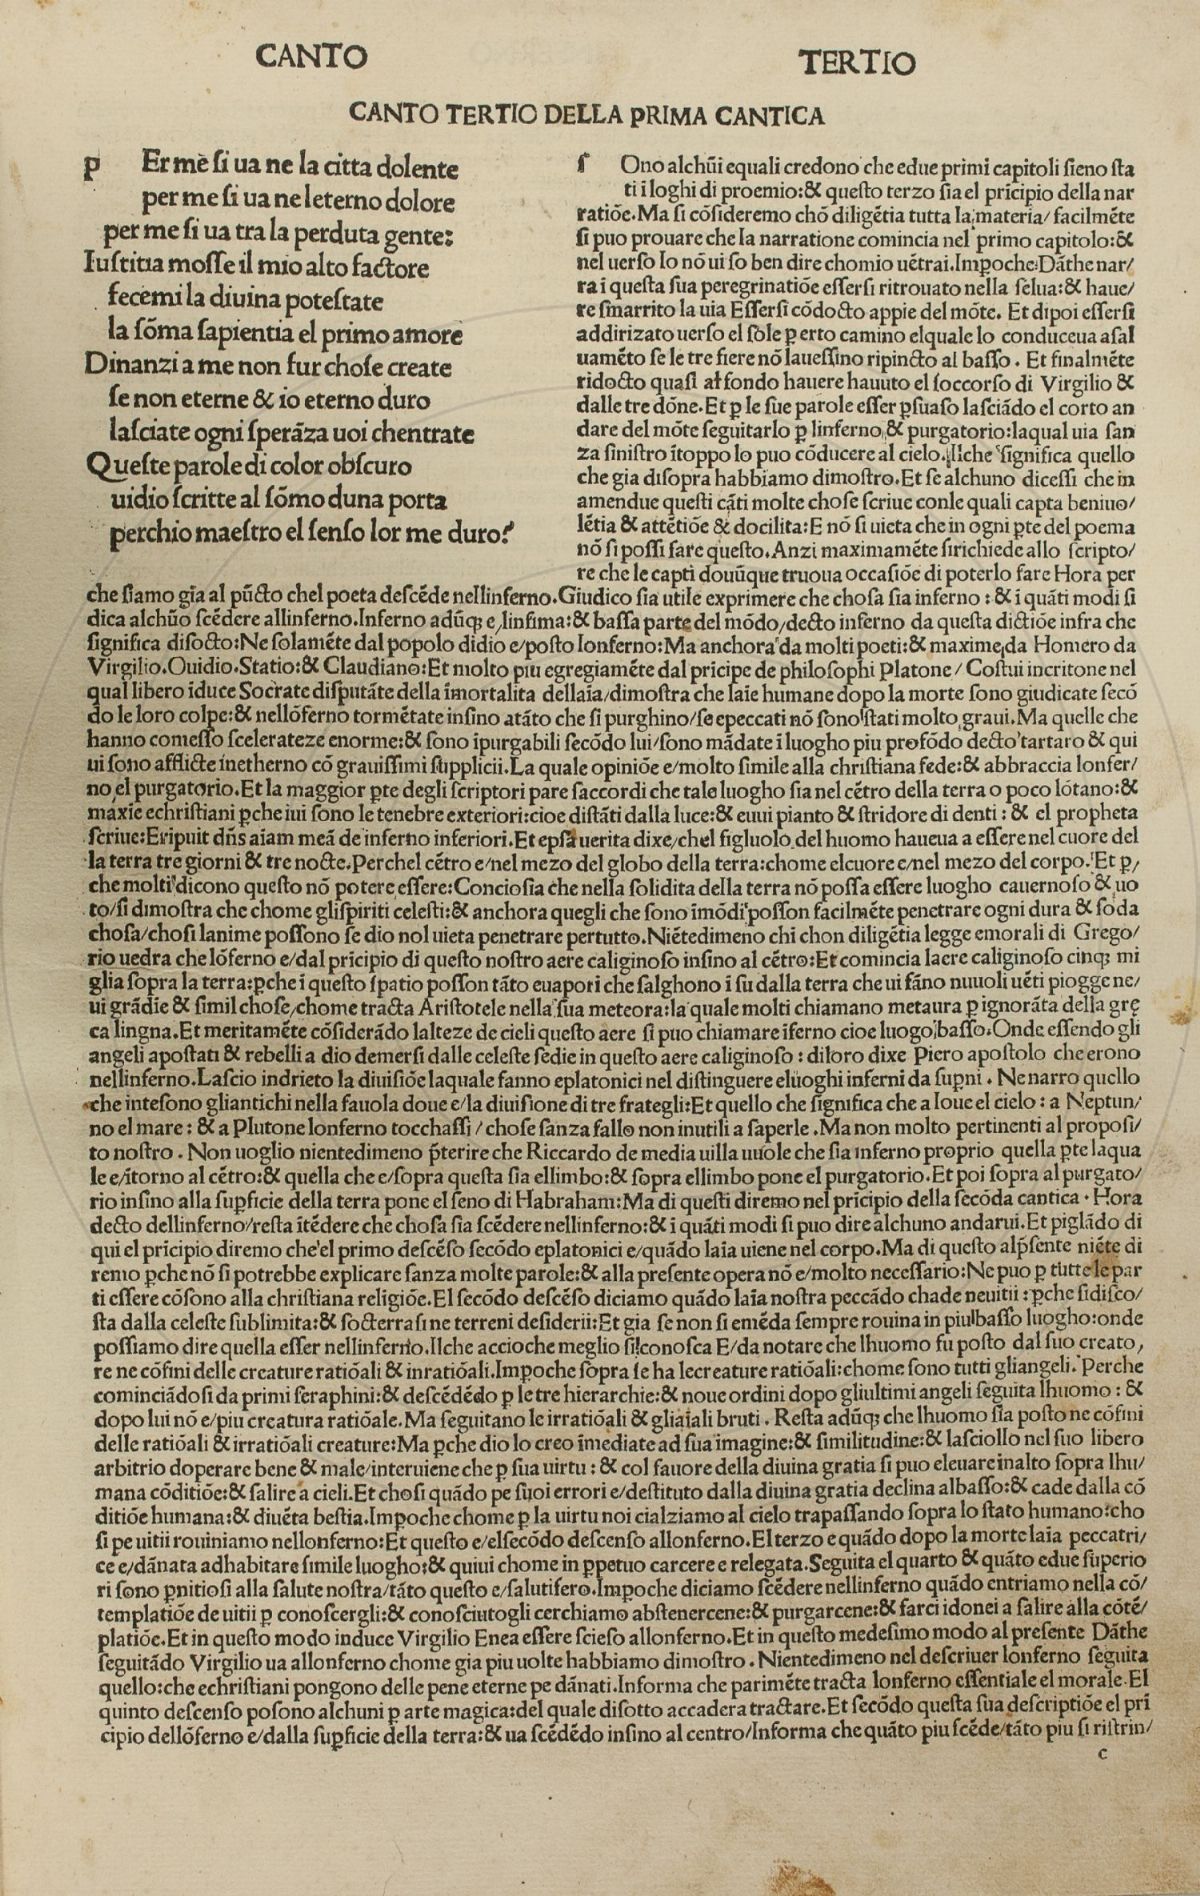 CANTO
TERTIO
CANTO TERTIO DELLA PRIMA CANTICA
p Er me si ua ne la citta dolente
per me si ua ne leterno dolore
per me si ua tra la perduta gente:
Iustitia mosse il mio alto factore
fecemi la diuina potestate
la sõma sapientia el primo amore
Dinanzi a me non fur chose create
se non eterne & io eterno duro
lasciate ogni sperãza uoi chentrate
Queste parole di color obscuro
uidio scritte al sõmo duna porta
perchio maestro el senso lor me duro?
ſ Ono alchũi equali credono che edue primi capitoli sieno sta
ti i loghi di proemio:& questo terzo sia el prĩcipio della nar
ratiõe.Ma si cõsideremo chõ diligẽtia tutta la materia/ facilmẽte
si puo prouare che la narratione comincia nel primo capitolo:&
nel uerso Io nõ ui so ben dire chomio uẽtrai.Imꝑoche Dãthe nar/
ra i questa sua peregrinatiõe essersi ritrouato nella selua:& haue/
re smarrito la uia Essersi cõdocto appie del mõte. Et dipoi essersi
addirizato uerso el sole ꝑ erto camino elquale lo conduceua asal
uamẽto se le tre fiere nõ lauessino ripincto al basso. Et finalmẽte
ridocto quasi al fondo hauere hauuto el soccorso di Virgilio &
dalle tre dõne.Et ꝑ le sue parole esser ꝑsuaso lasciãdo el corto an
dare del mõte seguitarlo ꝑ linferno & purgatorio:laqual uia san
za sinistro ĩtoppo lo puo cõducere al cielo.Ilche significa quello
che gia disopra habbiamo dimostro.Et se alchuno dicessi che in
amendue questi cãti molte chose scriue conle quali capta beniuo/
lẽtia & attẽtiõe & docilita:E nõ si uieta che in ogni ꝑte del poema
nõ si possi fare questo.Anzi maximamẽte sirichiede allo scripto/
re che le capti douũque truoua occasiõe di poterlo fare Hora per
che siamo gia al pũcto chel poeta descẽde nellinferno.Giudico sia utile exprimere che chosa sia inferno : & i quãti modi si
dica alchũo scẽdere allinferno.Inferno adũqꝫ e/linfima:& bassa parte del mõdo/decto inferno da questa dictiõe infra che
significa disocto:Ne solamẽte dal popolo didio e/posto lonferno:Ma anchora da molti poeti:& maxime da Homero da
Virgilio.Ouidio.Statio:& Claudiano:Et molto piu egregiamẽte dal prĩcipe de philosophi Platone/ Costui incritone nel
qual libero iduce Socrate disputãte della ĩmortalita dellaĩa/dimostra che laĩe humane dopo la morte sono giudicate secõ
do le loro colpe:& nellõferno tormẽtate insino atãto che si purghino/se epeccati nõ sono stati molto graui.Ma quelle che
hanno comesso scelerateze enorme:& sono ĩpurgabili secõdo lui/sono mãdate ĩ luogho piu profõdo decto tartaro & qui
ui sono afflicte inetherno cõ grauissimi supplicii.La quale opiniõe e/molto simile alla christiana fede:& abbraccia lonfer/
no el purgatorio.Et la maggior ꝑte degli scriptori pare saccordi che tale luogho sia nel cẽtro della terra o poco lõtano:&
maxĩe echristiani ꝑche iui sono le tenebre exteriori:cioe distãti dalla luce:& euui pianto & stridore di denti : & el propheta
scriue:Eripuit dñs aĩam meã de inferno inferiori.Et epsa uerita dixe/chel figluolo del huomo haueua a essere nel cuore del
la terra tre giorni & tre nocte.Perchel cẽtro e/nel mezo del globo della terra:chome elcuore e/nel mezo del corpo. Et ꝑ/
che molti dicono questo nõ potere essere:Conciosia che nella solidita della terra nõ possa essere luogho cauernoso & uo
to/si dimostra che chome glispiriti celesti:& anchora quegli che sono ĩmõdi posson facilmẽte penetrare ogni dura & soda
chosa/chosi lanime possono se dio nol uieta penetrare pertutto.Niẽtedimeno chi chon diligẽtia legge emorali di Grego/
rio uedra che lõferno e/dal prĩcipio di questo nostro aere caliginoso insino al cẽtro:Et comincia laere caliginoso cinqꝫ mi
glia sopra la terra:ꝑche i questo spatio posson tãto euapori che salghono i su dalla terra che ui fãno nuuoli uẽti piogge ne/
ui grãdĩe & simil chose/chome tracta Aristotele nella sua meteora:la quale molti chiamano metaura ꝑ ignorãta della grę
ca lingna.Et meritamẽte cõsiderãdo lalteze de cieli questo aere si puo chiamare iferno cioe luogo basso.Onde essendo gli
angeli apostati & rebelli a dio demersi dalle celeste sedie in questo aere caliginoso : diloro dixe Piero apostolo che erono
nellinferno.Lascio indrieto la diuisiõe laquale fanno eplatonici nel distinguere eluoghi inferni da suꝑni . Ne narro quello
che intesono gliantichi nella fauola doue e/la diuisione di tre frategli:Et quello che significa che a Ioue el cielo : a Neptun/
no el mare : & a Plutone lonferno tocchassi / chose sanza fallo non inutili a saperle .Ma non molto pertinenti al proposi/
to nostro . Non uoglio nientedimeno p̃terire che Riccardo de media uilla uuole che sia inferno proprio quella ꝑte laqua
le e/ĩtorno al cẽtro:& quella che e/sopra questa sia ellimbo:& sopra ellimbo pone el purgatorio.Et poi sopra al purgato/
rio insino alla suꝑficie della terra pone el seno di Habraham:Ma di questi diremo nel prĩcipio della secõda cantica . Hora
decto dellinferno/resta ĩtẽdere che chosa sia scẽdere nellinferno:& i quãti modi si puo dire alchuno andarui.Et piglãdo di
qui el prĩcipio diremo che el primo descẽso secõdo eplatonici e/quãdo laĩa uiene nel corpo.Ma di questo alp̃sente niẽte di
remo ꝑche nõ si potrebbe explicare sanza molte parole:& alla presente opera nõ e/molto necessario:Ne puo ꝑ tutte le par
ti essere cõsono alla christiana religiõe.El secõdo descẽso diciamo quãdo laĩa nostra peccãdo chade neuitii : ꝑche sidisco/
sta dalla celeste sublimita:& socterrasi ne terreni desiderii:Et gia se non si emẽda sempre rouina in piu basso luogho:onde
possiamo dire quella esser nellinferno.Ilche accioche meglio si conosca E/da notare che lhuomo fu posto dal suo creato,
re ne cõfini delle creature ratiõali & inratiõali.Imꝑoche sopra se ha lecreature ratiõali:chome sono tutti gliangeli. Perche
cominciãdosi da primi seraphini:& descẽdẽdo ꝑ le tre hierarchie:& noue ordini dopo gliultimi angeli seguita lhuomo : &
dopo lui nõ e/piu creatura ratiõale.Ma seguitano le irratiõali & gliaĩali bruti . Resta adũqꝫ che lhuomo sia posto ne cõfini
delle ratiõali & irratiõali creature:Ma ꝑche dio lo creo ĩmediate ad sua imagine:& similitudine:& lasciollo nel suo libero
arbitrio doperare bene & male/interuiene che ꝑ sua uirtu : & col fauore della diuina gratia si puo eleuare inalto sopra lhu/
mana cõditiõe:& salire a cieli.Et chosi quãdo pe suoi errori e/destituto dalla diuina gratia declina albasso:& cade dalla cõ
ditiõe humana:& diuẽta bestia.Imꝑoche chome ꝑ la uirtu noi cialziamo al cielo trapassando sopra lo stato humano:cho
si pe uitii rouiniamo nellonferno:Et questo e/elsecõdo descenso allonferno.El terzo e quãdo dopo la morte laĩa peccatri/
ce e/dãnata adhabitare simile luogho:& quiui chome in ꝑpetuo carcere e relegata.Seguita el quarto & quãto edue superio
ri sono ꝑnitiosi alla salute nostra/tãto questo e/salutifero.Imꝑoche diciamo scẽdere nellinferno quãdo entriamo nella cõ/
templatiõe de uitii ꝑ conoscergli:& conosciutogli cerchiamo abstenercene:& purgarcene:& farci idonei a salire alla cõtẽ/
platiõe.Et in questo modo induce Virgilio Enea essere sciesο allonferno.Et in questo medesimo modo al presente Dãthe
seguitãdo Virgilio ua allonferno chome gia piu uolte habbiamo dimostro . Nientedimeno nel descriuer lonferno seguita
quello:che echristiani pongono delle pene eterne pe dãnati.Informa che parimẽte tracta lonferno essentiale el morale.El
quinto descenso posono alchuni ꝑ arte magica:del quale disotto accadera tractare.Et secõdo questa sua descriptiõe el prĩ
cipio dellõferno e/dalla suꝑficie della terra:& ua scẽdẽdo insino al centro/Informa che quãto piu scẽde/tãto piu si ristrin/
c